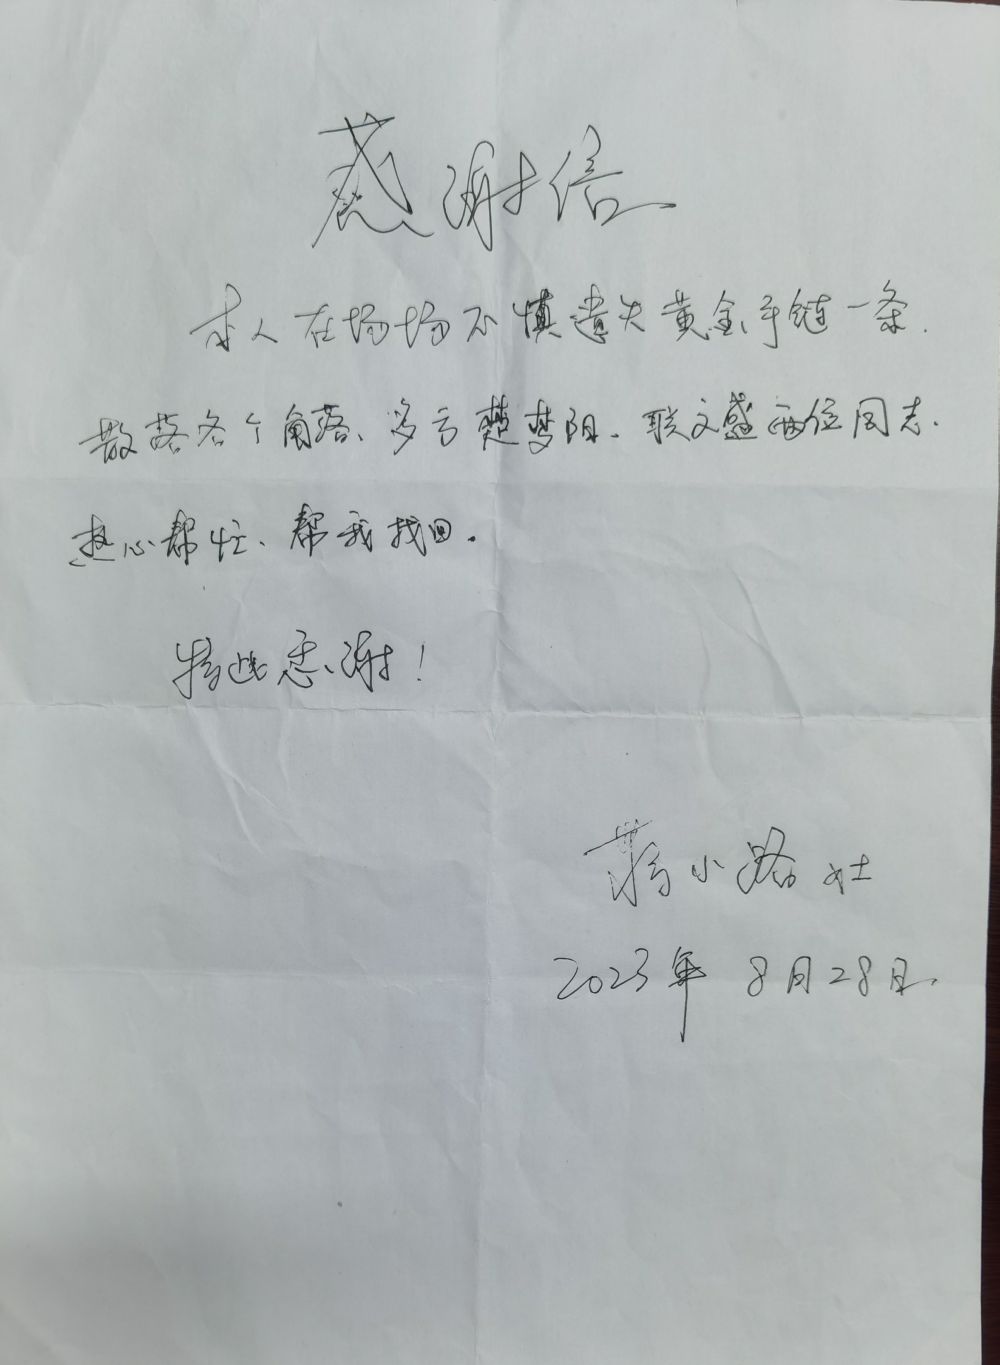 感谢信
本人在场场不慎遗失黄金手链一条.
散落各个角落、多亏楚梦阳、联文盛两位同志.
热心帮忙、帮我找回.
特此感谢!
蒋小路 女士
2023年 8月28日.